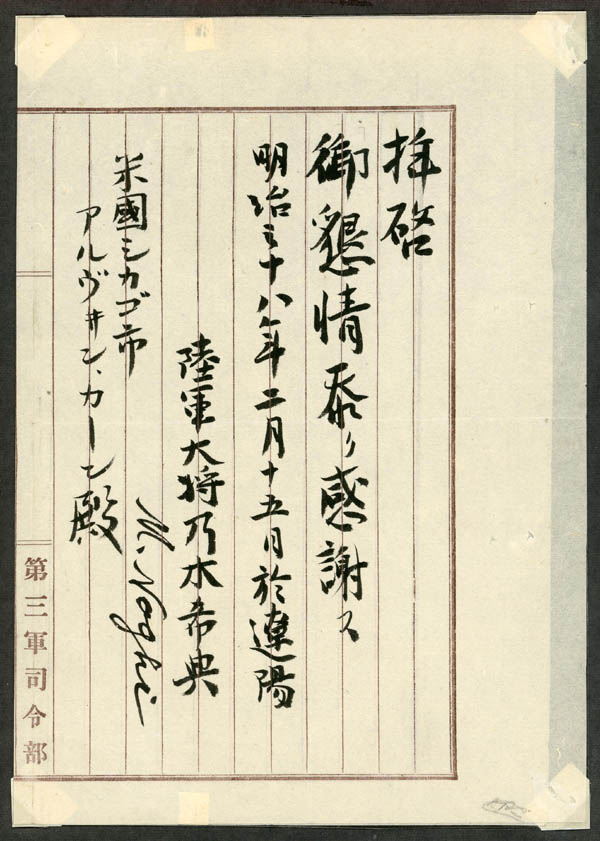 拝啓
御懇情忝ク感謝ス
明治三十八年二月十五日於遼陽
陸軍大将乃木希典
M. Noghi
米國シカゴ市
アルヴヰン、カーン殿
第三軍司令部